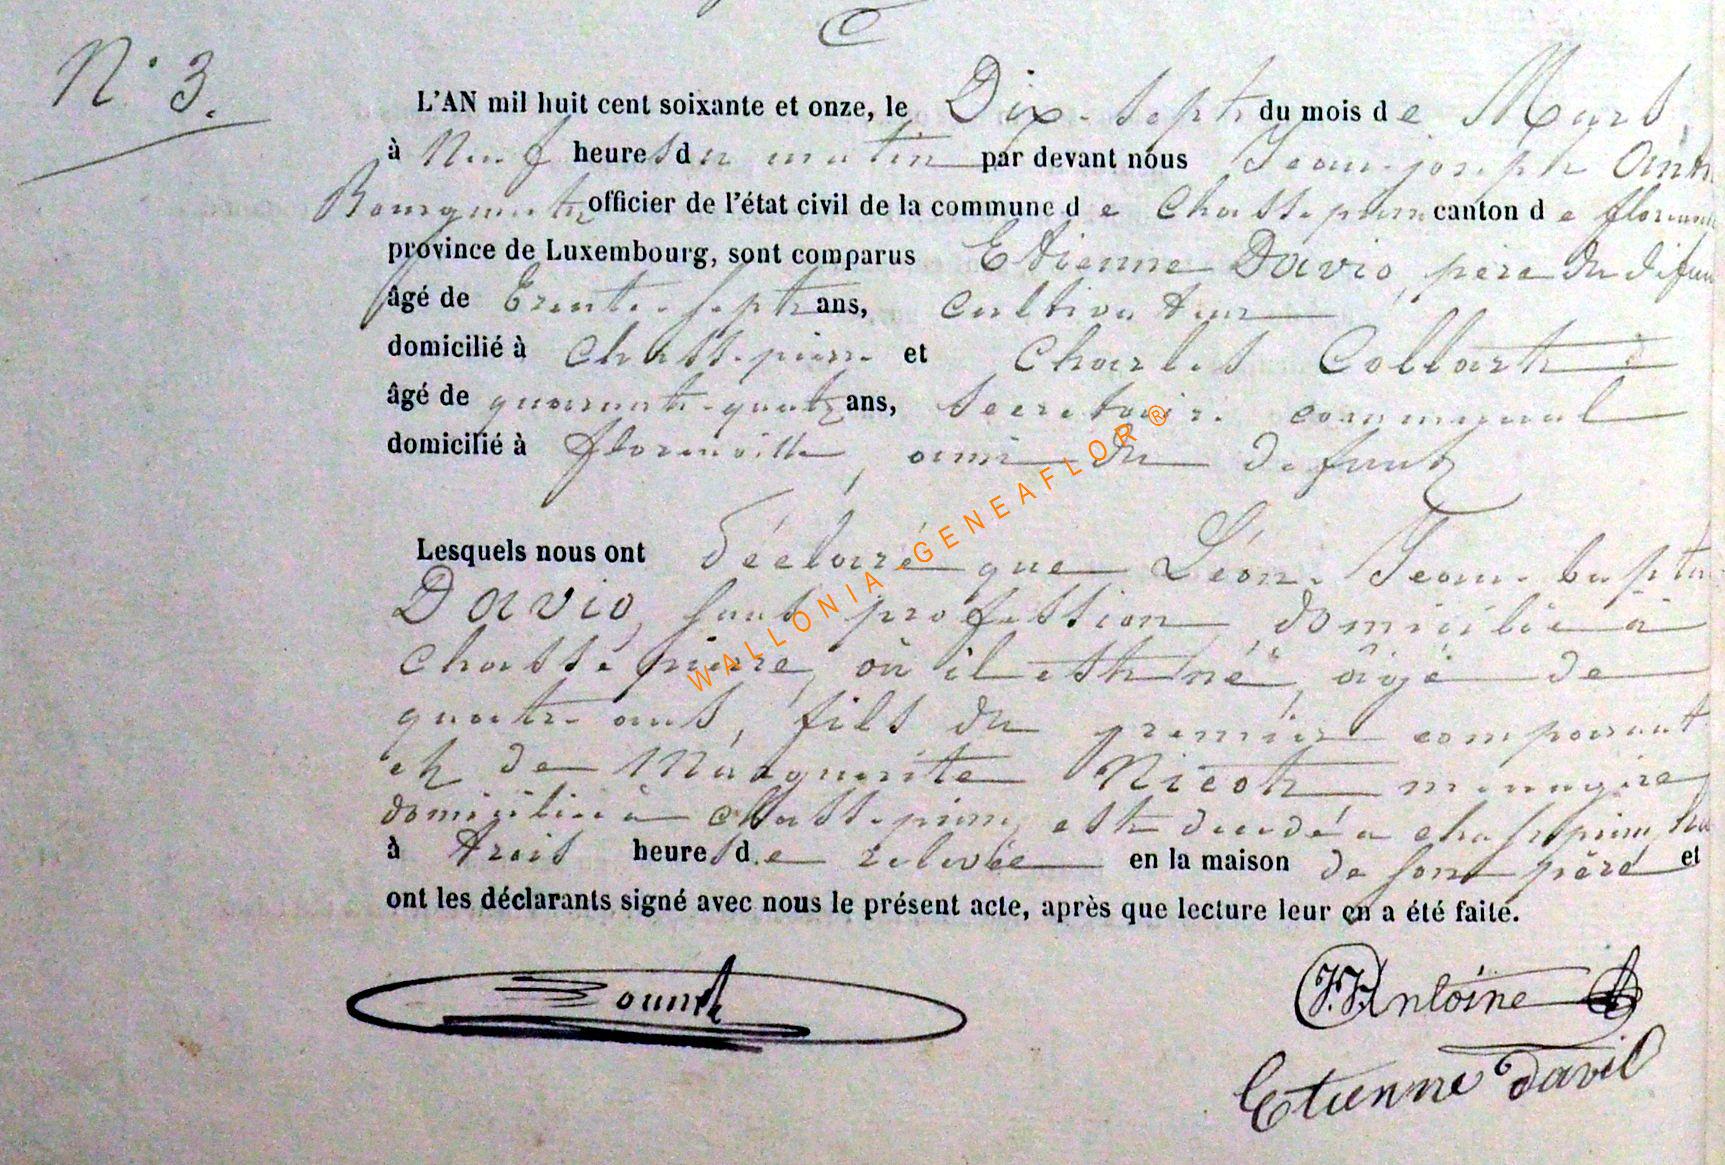 N° 3.
L'AN mil huit cent soixante et onze, le Dix-sept du mois de Mars
à Neuf heures du matin par devant nous Jean-joseph
Bourgmestre officier de l'état civil de la commune de Chassepierre canton de florenville
province de Luxembourg, sont comparus Etienne Davio, père du défunt
âgé de trente-sept ans, cultivateur
domicilié à Chassepierre et Charles Collart
âgé de quarante-quatre ans, secretaire communal
domicilié à florenville, ami du defunt
Lesquels nous ont déclaré que Léon-Jean-baptiste
Davio, sans profession, domicilié à
Chassepierre, où il est né, âgé de
quatre ans, fils du premier comparant
et de Marguerite Nicot menagère
domiciliée à Chassepierre, est décédé à chassepierre,
à trois heures de relevée en la maison de son père et
ont les déclarants signé avec nous le présent acte, après que lecture leur en a été faite.
J.J. Antoine
Etienne davio
WALLONIA-GENEAFLOR ®